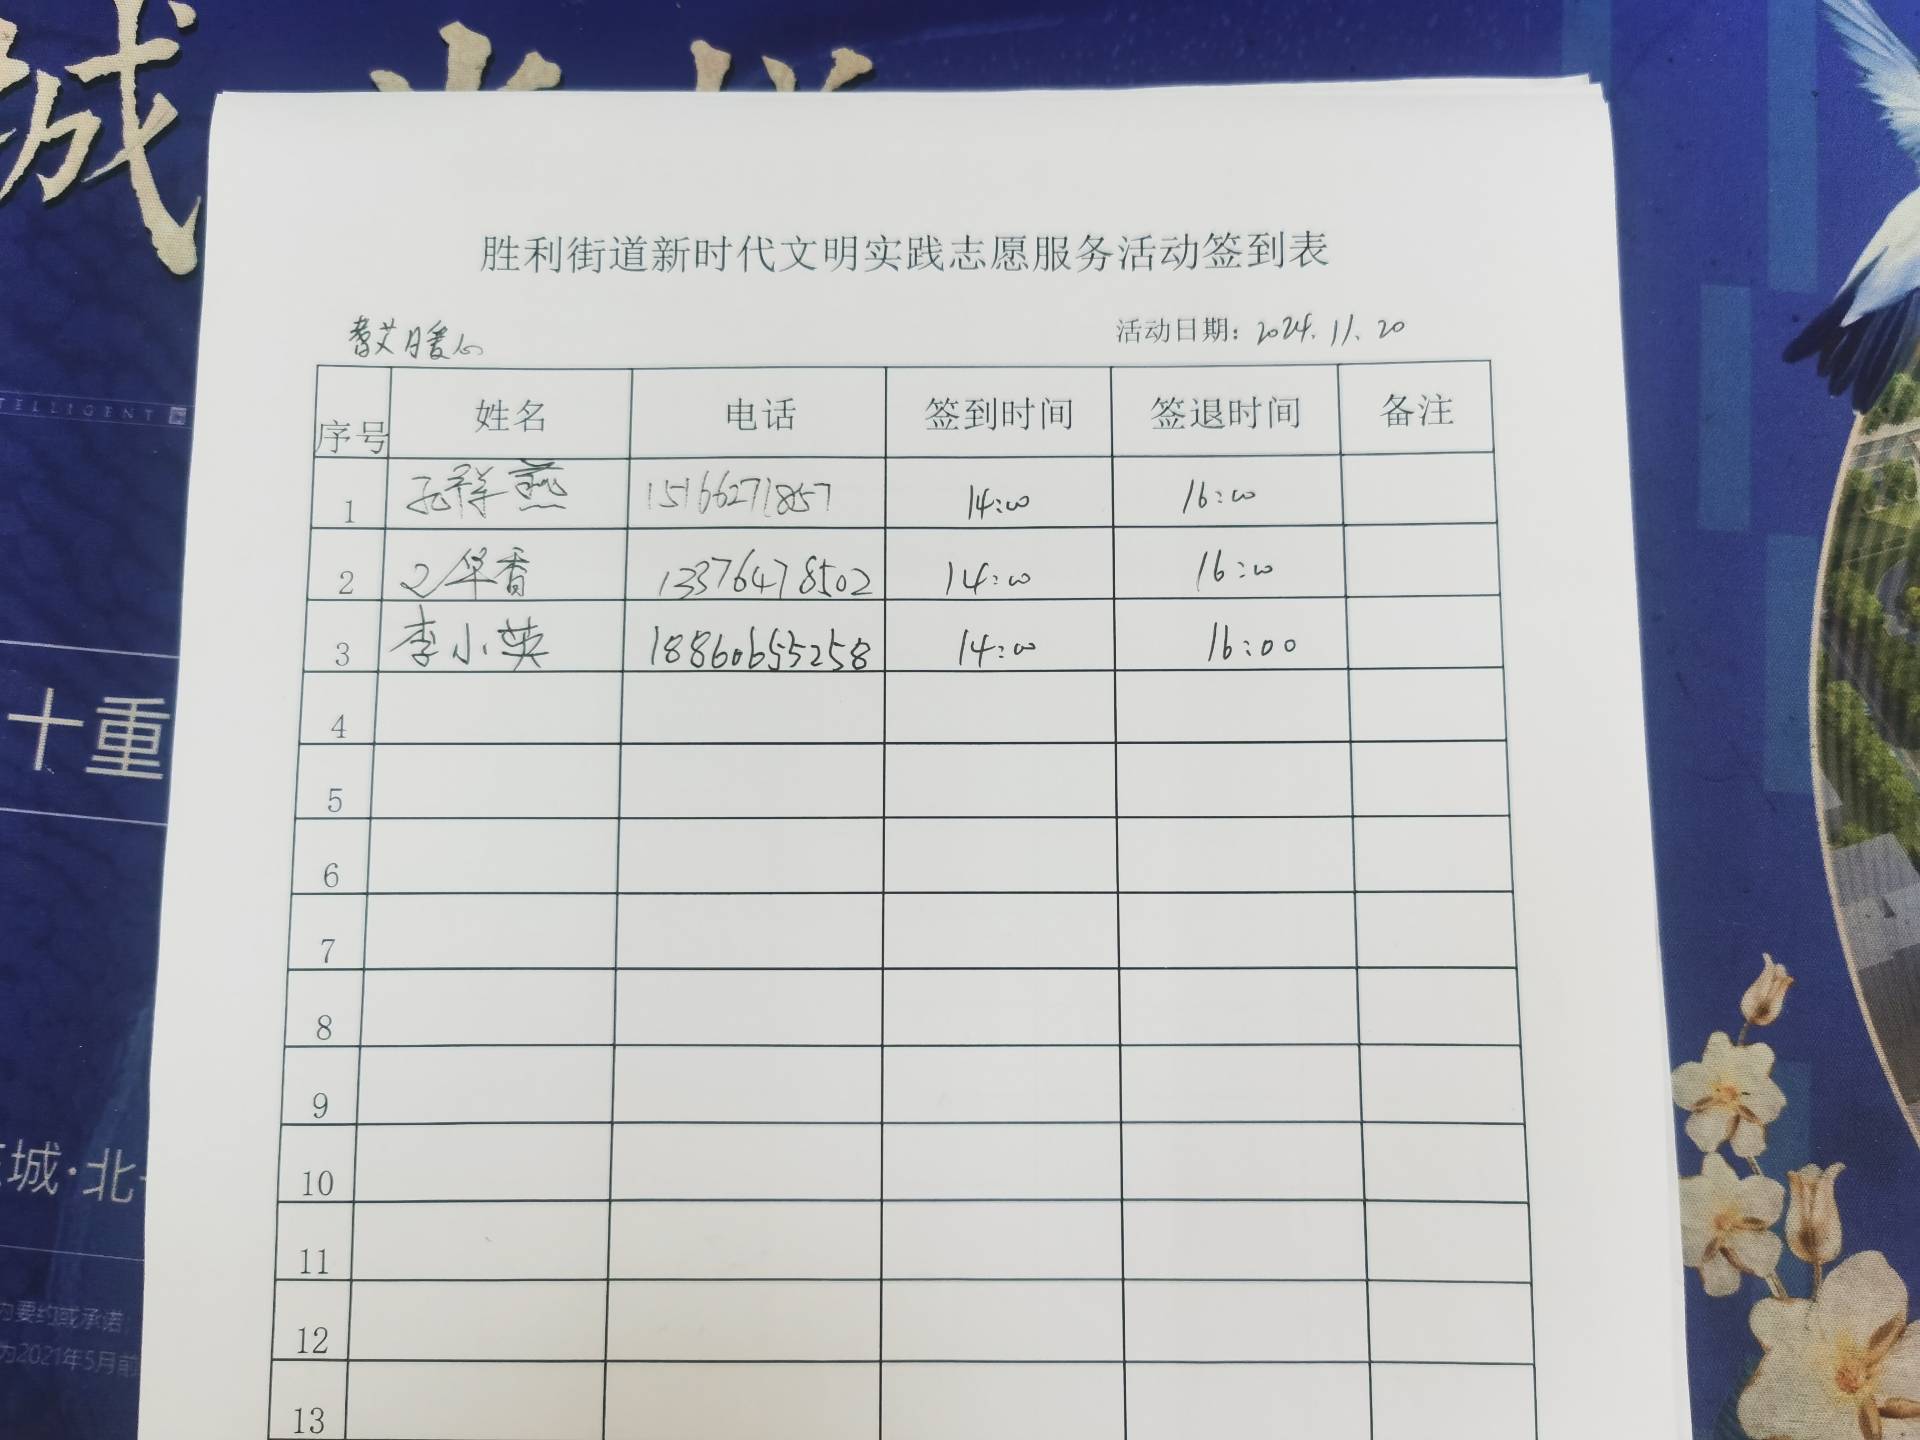 城
TELLIGENT
十重
城·北
为要约或承诺
为2021年5月前
胜利街道新时代文明实践志愿服务活动签到表
活动日期: 2024.11.20
序号 姓名 电话 签到时间 签退时间 备注
1 孔祥燕 15166271857 14:00 16:00
2 华香 13376478502 14:00 16:00
3 李小英 18860655258 14:00 16:00
4
5
6
7
8
9
10
11
12
13